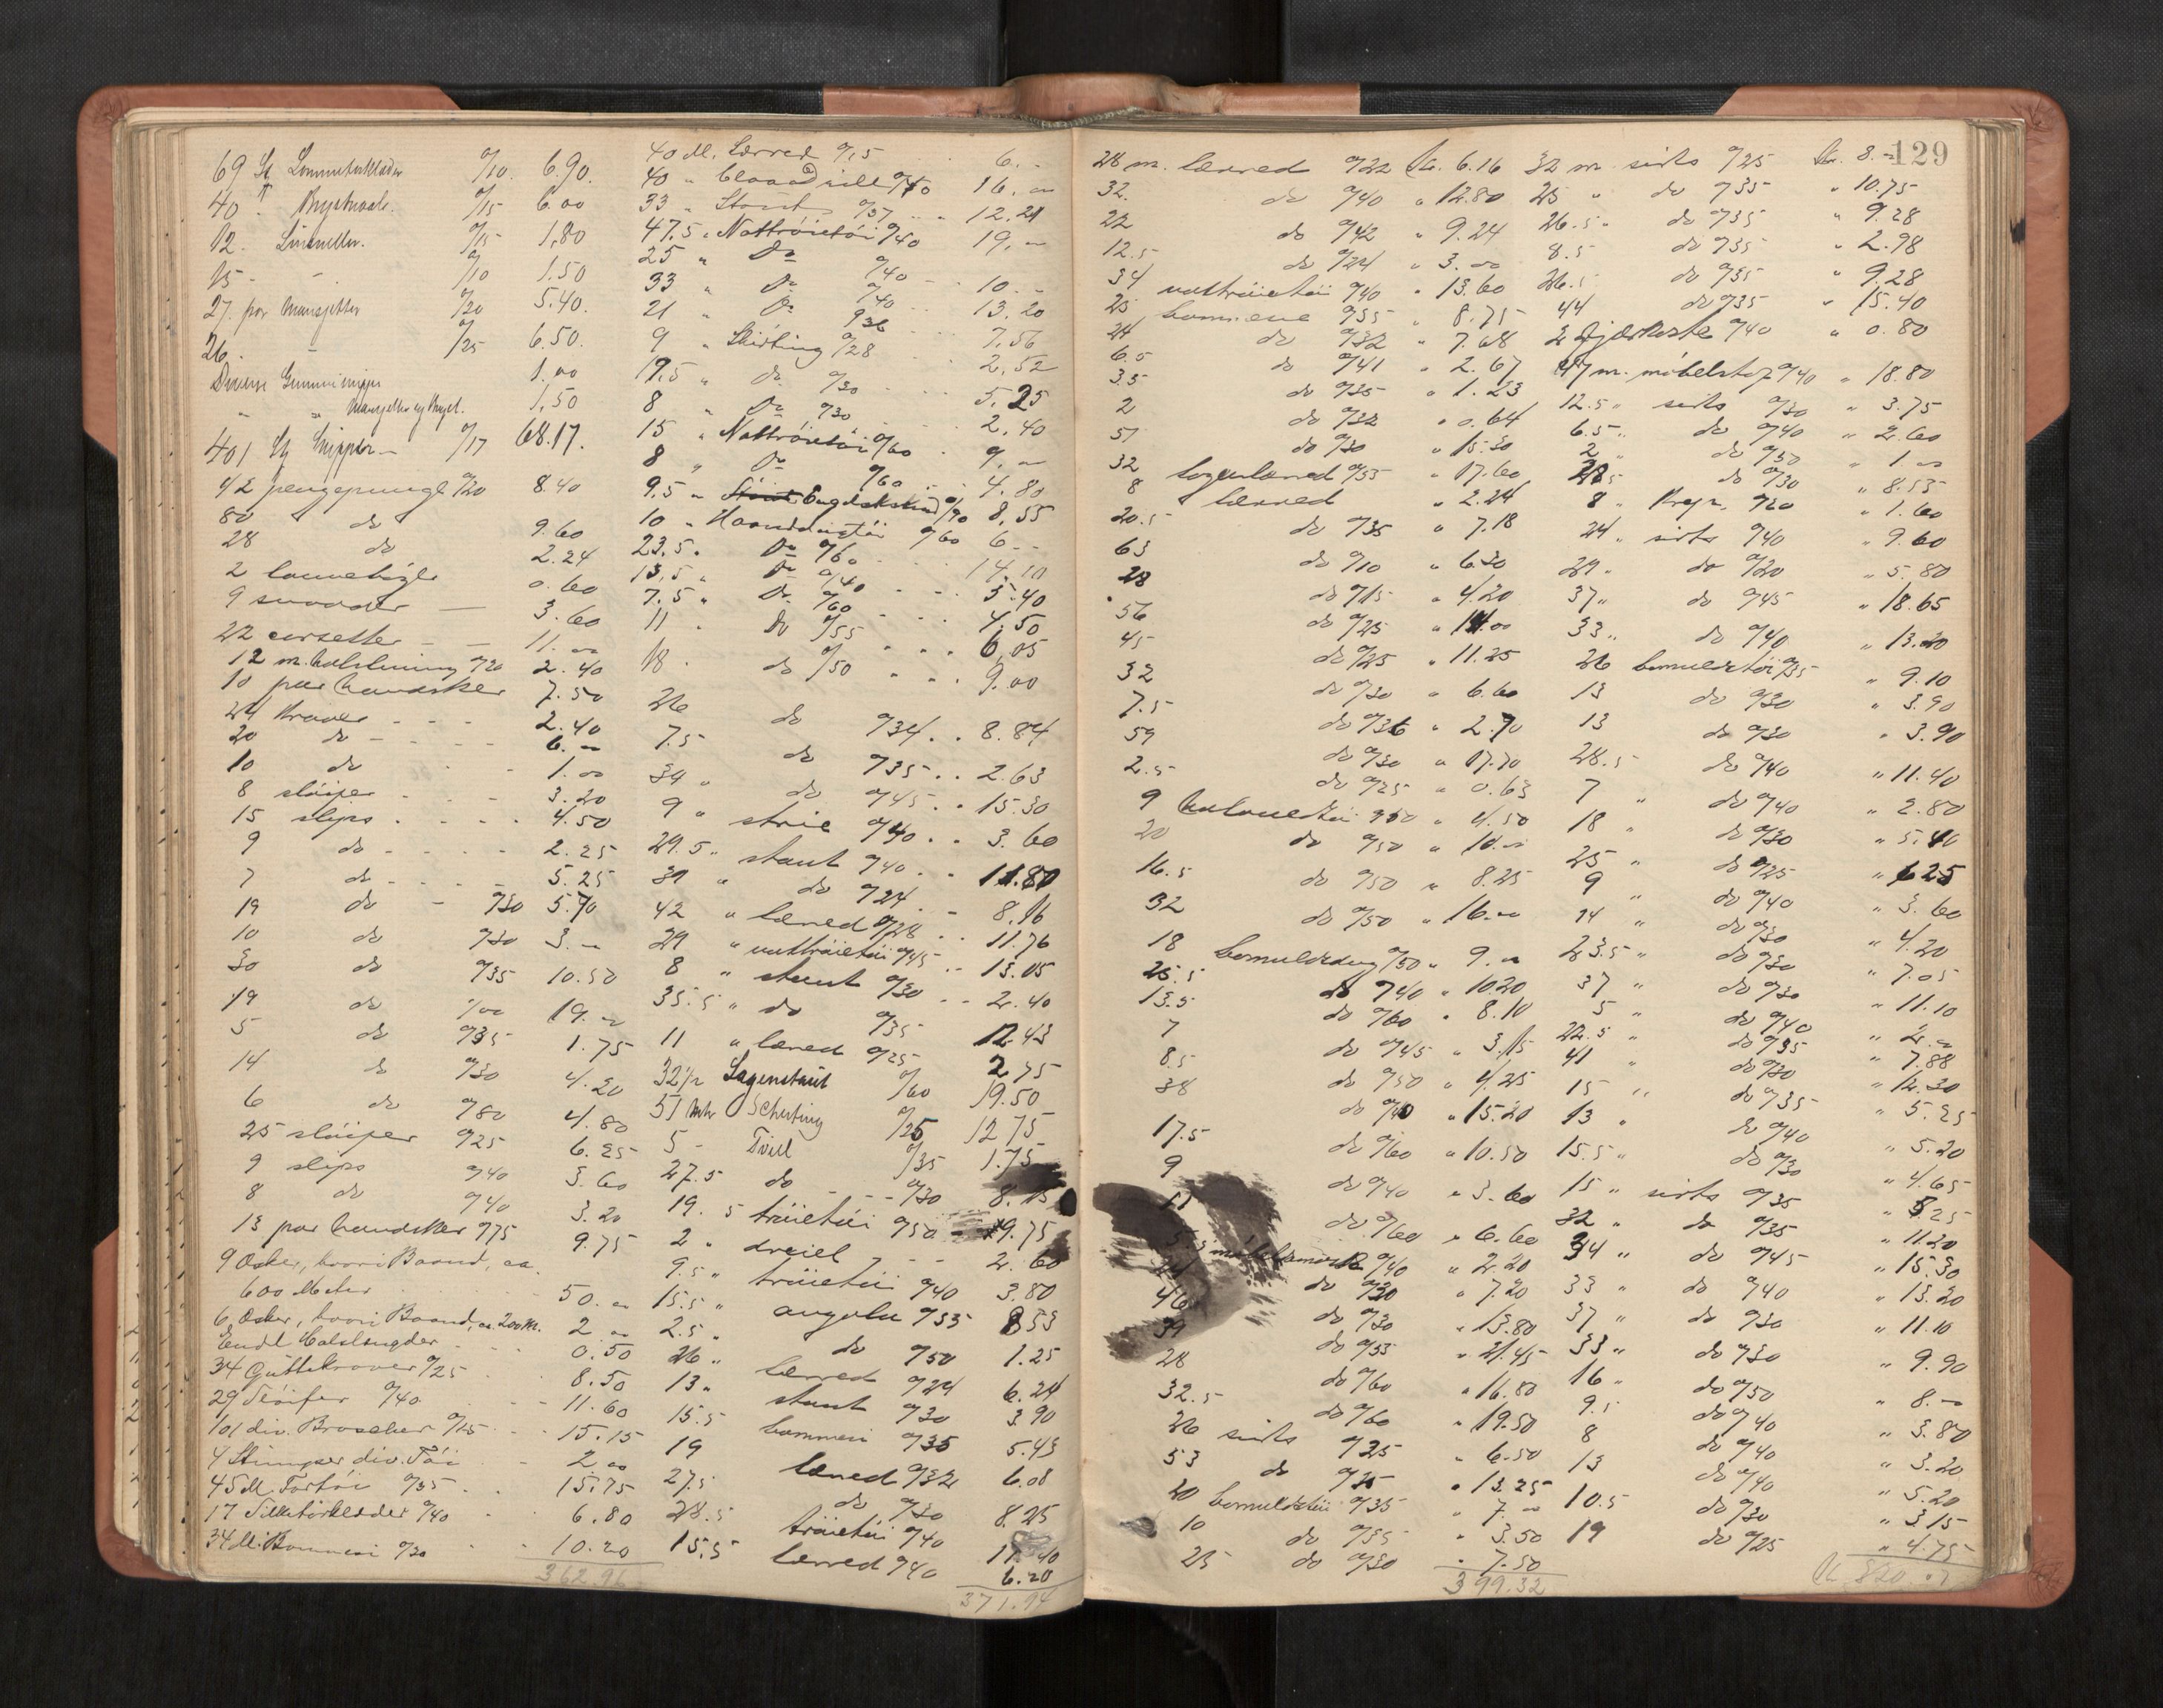 69 St. Lommetørklæder %10. 6.90.
40 " Brystnaale. %15 6.00
12. Linneller. %15 1,80
15 - - %10 1.50
27. par Mansjetter %20 5.40.
26. - %25 6.50.
Diverse Gummisnipper 1.00
" " Mansjetter og Bryst. 1,50
401 St Snipper - %17 68.17.
42 pengepunge %20 8.40
80 do 9.60
28 do 2.24
2 lommebøger 0.60
9 3.60
22 corsetter - - 11.00
12 m. %20 2.40
10 par handsker 7.50
24 Kraver - - - 2.40
20 do - - - - 6.00
10 do - - 1.00
8 sløifer - - - 3.20
15 slips . . . . 4.50
9 do - - - - 2.25
7 do - - - 5.25
19 do - %30 5.70
10 do %30 3.-
30 do %35 10.50
19 do 1/00 19.00
5 do %35 1.75
14 do %30 4.20
6 do %80 4.80
25 sløifer %25 6.25
9 slips %40 3.60
8 do %40 3.20
13 par handsker %75 9.75
9 Æsker, hvori Baand, ca.
600 Meter 50.00
6 Æsker, hvori Baand, ca. 200 M. 2.00
Endl Halslingder 0.50
34 Guttekraver %25 8.50
29 Sløifer %40 11.60
101 div. Broscher %15 15.15
4 Stumper div. Tøi 2.00
45 M. Fortøi %35 15.75
17 Silketørklæder %40 6.80
34 M. Bommesi %30 10.20
362.96
40 M. Lærred %15 6.-
40 " %40 16.00
33 " Stout %37 12.21
47.5 " Nattrøietøi %40 19.00
25 " Do %40 10.-
33 " Do %40 13.20
21 " Do %36 7.56
9 " Shirting %28 2.52
17,5 " Do %30 5.25
8 " Do %30 2.40
15 " Nattrøietøi %60 9.-
8 " Do %60 4.80
9.5 " Engelskskind %90 8,55
10 " Haanddugtøi %60 6.-
23.5 " Do %60 14.10
13,5 " Do %40 5.40
7.5 " Do %60 4.50
11 " Do %55 6,05
18 " do %50 9.00
26 do %34 8.84
7.5 do %35 2.63
34 " do %45 15.30
9 " strie %40 3.60
29.5 " stout %40 11.80
34 " do %24 8.16
42 " lærred %28 11.76
29 " nattrøietøi %45 13.05
8 " stout %30 2.40
35.5 " do %35 12.43
11 " lærred %25 2.75
32½ Lagenstaut %60 19.50
51 Mtr Scherting %25 12 75
5 - Tvill %35 1.75
27.5 do %30 8.25
19.5 trøietøi %50 9.75
2 " dreiel 2.60
9.5 " trøietøi %40 3.80
15.5 " angola %55 8 53
2.5 " do %50 1.25
26 " lærred %24 6.24
13 " stout %30 3.90
15.5 bommesi %35 5.43
19 lærred %32 6.08
27.5 do %30 8.25
28.5 trøietøi %40 11.40
15.5 lærred %40 6.20
371.94
129
28 m. lærred %22 Kr. 6.16
32. do %40 " 12.80
22 do %42 " 9.24
12.5 do %24 " 3.00
34 nattrøietøi %40 " 13.60
25 bommesie %35 " 8.75
24 do %32 " 7.68
6.5 do %41 " 2.67
3.5 do %35 " 1.23
2 do %32 " 0.64
51 do %30 " 15.30
32 lagenlærred %55 " 17.60
8 lærred " 2.24
20.5 do %35 " 7.18
63 do %10 " 6.30
28 do %15 " 4.20
56 do %25 " 14.00
45 do %25 " 11.25
32 do %30 " 6.60
7.5 do %36 " 2.70
59 do %30 " 17.70
2.5 do %25 " 0.63
9 %50 " 4.50
20 do %50 " 10.00
16.5 do %50 " 8.25
32 do %50 " 16.00
18 bomuldsdug %50 " 9.00
25.5 do %40 " 10.20
13.5 do %60 " 8.10
7 do %45 " 3.15
8.5 do %50 " 4.25
38 do %40 " 15.20
17.5 do %60 " 10.50
9 do %40 " 3.60
11 do %60 " 6.60
5.5 %40 " 2.20
24 do %30 " 7.20
46 do %30 " 13.80
39 do %55 " 21.45
28 do %60 " 16.80
32.5 do %60 " 19.50
26 sirts %25 " 6.50
53 do %25 " 13.25
20 bomuldstøi %35 " 7.00
10 do %35 " 3.50
25 do %30 " 7.50
399.32
32 m. sirts %25 Kr. 8.-
25 " do %35 " 10.75
26.5 " do %35 " 9.28
8.5 do %35 " 2.98
26.5 do %35 " 9.28
44 do %35 " 15.40
2 %40 " 0.80
47 m. møbelstof %40 " 18.80
12.5 " sirts %30 " 3.75
6.5 " do %40 " 2.60
2 " do %50 " 1.00
28.5 do %30 " 8.55
8 " Krep. %20 " 1.60
24 " sirts %40 " 9.60
29 " do %20 " 5.80
37 " do %45 " 18.65
33 " do %40 " 13.20
26 bomuldstøi %35 " 9.10
13 do %30 " 3.90
13 do %30 " 3.90
28.5 do %40 " 11.40
7 " do %40 " 2.80
18 " do %30 " 5.40
25 " do %25 " 6.25
9 " do %40 " 3.60
14 " do %30 " 4.20
23.5 " do %30 " 7.05
37 " do %30 " 11.10
5 " do %40 " 2.00
22.5 " do %35 " 7.88
41 " do %30 " 12.30
15 " do %35 " 5.25
13 " do %40 " 5.20
15.5 " do %30 " 4.65
15 " sirts %35 " 5.25
32 " do %35 " 11.20
34 " do %45 " 15.30
33 " do %40 " 13.20
37 " do %30 " 11.10
33 " do %30 " 9.90
16 " do %50 " 8.00
9.5 do %40 " 3.80
8 do %40 " 3.20
13 do %40 " 5.20
10.5 do %30 " 3.15
19 do %25 " 4.75